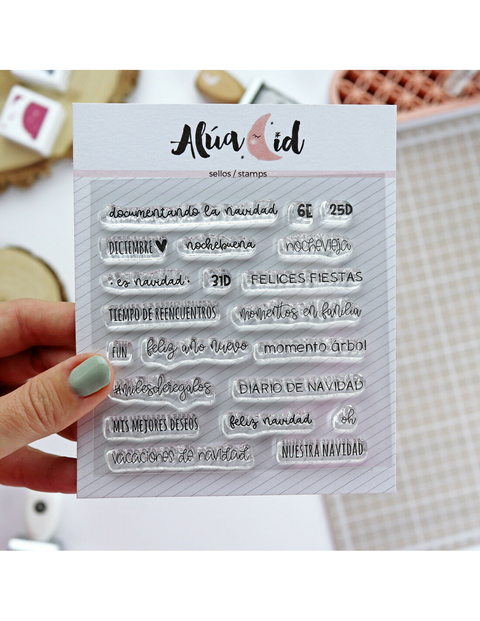 Alúa Cid
sellos / stamps
documentando la navidad 6E 25D
DICIEMBRE nochebuena nochevieja
• es navidad • 31D FELICES FIESTAS
TIEMPO DE REENCUENTROS momentos en familia
FUN feliz año nuevo momento árbol
#milesderegalos DIARIO DE NAVIDAD
MIS MEJORES DESEOS feliz navidad oh
vacaciones de navidad NUESTRA NAVIDAD